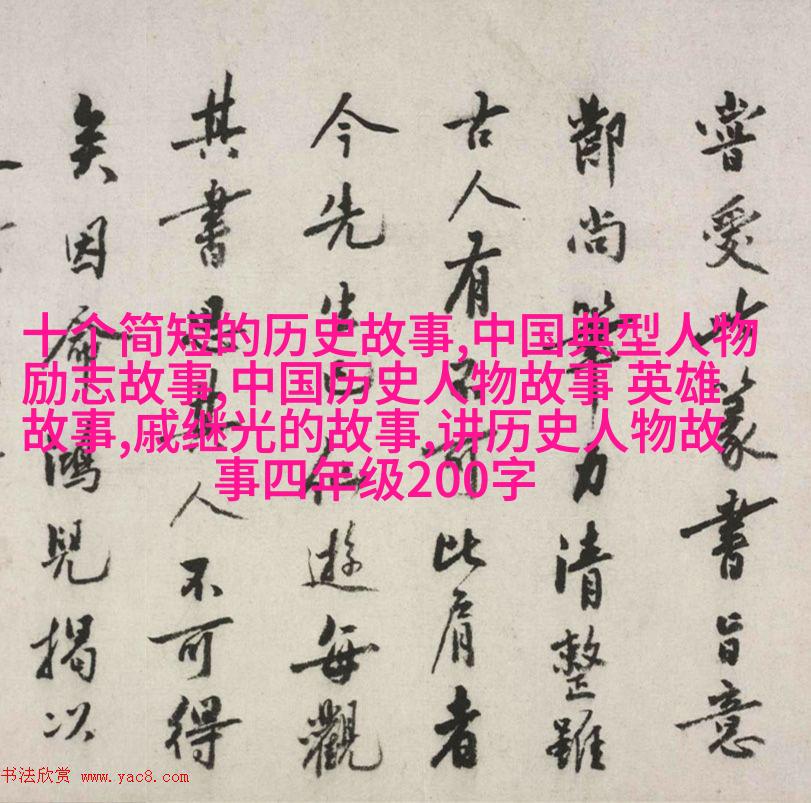 十个简短的历史故事,中国典型人物
励志故事,中国历史人物故事 英雄
故事,戚继光的故事,讲历史人物故
事四年级200字
嘗愛篆書旨意
尚筆力清整雖
古人有比肩者
今先生已仙遊每觀
其書思其人不可得
矣因俞鴻兒揭以
书法欣赏 www.yac8.com